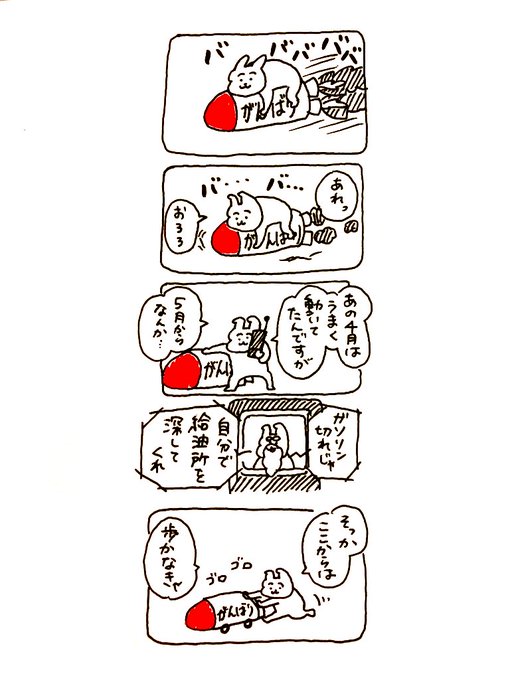 バ ババババ
がんばり
あれっ
バ‥‥バ…
おろろ
がんばり
あの4月は
うまく
動いて
たんですが
5月から
なんか…
がんば
ガソリン
切れじゃ
自分で
給油所を
深して
くれ
そっか、
ここからは
歩かなきゃ
ゴロ
ゴロ
がんばり